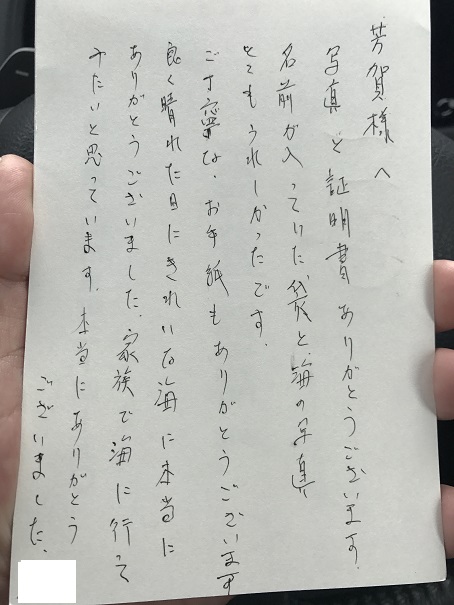 芳賀様へ
写真と証明書ありがとうございます。
名前が入っていた袋と、海の写真
とてもうれしかったです。
ご丁寧な、お手紙もありがとうございます
良く晴れた日にきれいな海に本当に
ありがとうございました。家族で海に行って
みたいと思っています。本当にありがとう
ございました。